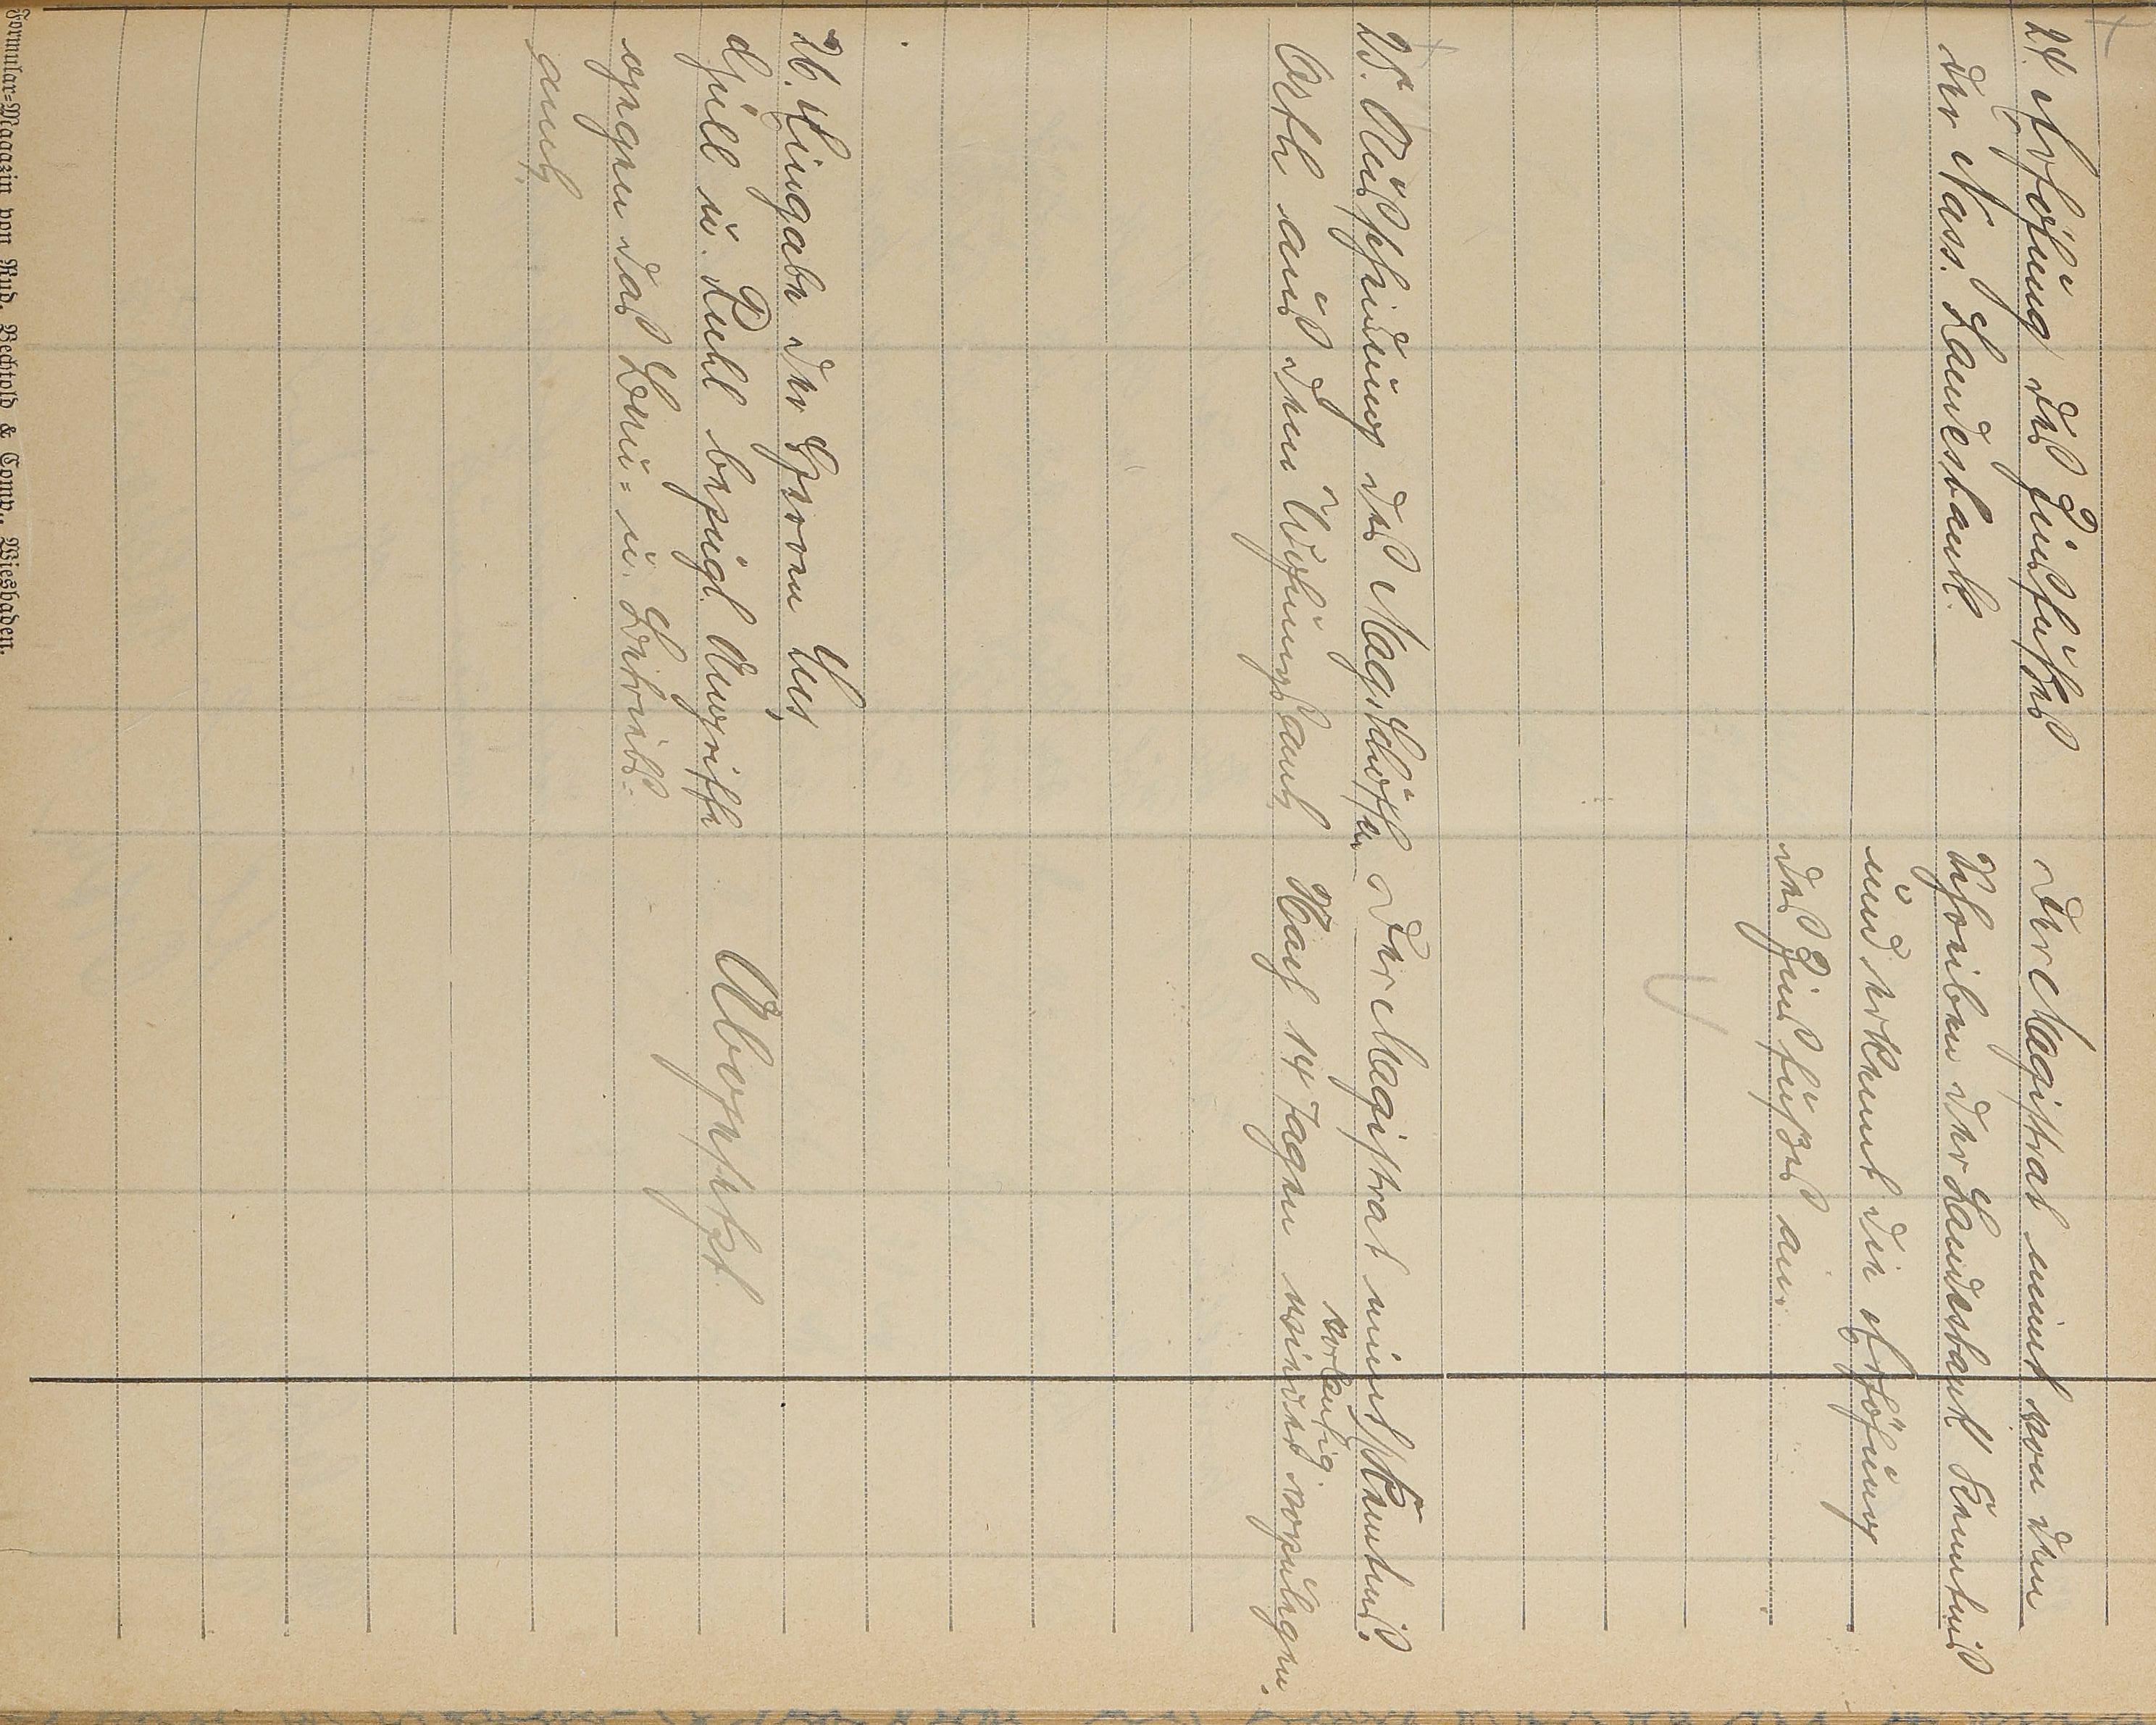 24. Erhöhung des Zinsfußes
der Nass. Landesbank.
Der Magistrat nimmt von dem
Schreiben der Landesbank Kenntnis
und erkennt die Erhöhung
des Zinsfußes an.
25. Ausscheidung des Mag. Schöffen
Orth aus dem Wohnungsamt
Der Magistrat nimmt Kenntnis.
vorläufig
Nach 14 Tagen wieder vorzulegen.
26. Eingabe der Herren
u. Ruhl bezügl. Angriffe
gegen das Bau- u. Betriebs-
amt
Abgesetzt.
Formular-Magazin von Rud. Bechtold & Comp., Wiesbaden.